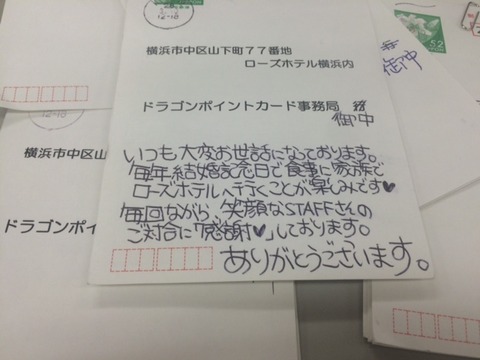 12-10
横浜市中区山下町77番地
ローズホテル横浜内
ドラゴンポイントカード事務局 行
御中
いつも大変お世話になっております。
毎年結婚記念日で食事に家族で
ローズホテルへ行くことが楽しみです♥
毎回ながら、笑顔なSTAFFさんの
ご対合に「感謝♥」しております。
ありがとうございます。
12-10
横浜市中区山
ドラゴンポイ
御中
52